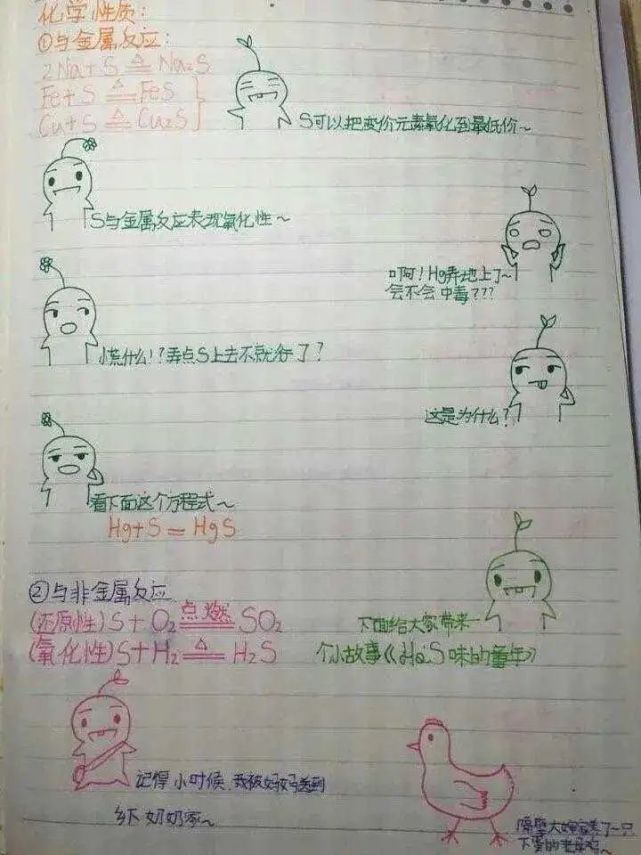 化学性质:
①与金属反应:
2Na+S ≜ Na₂S
Fe+S ≜ FeS
Cu+S ≜ Cu₂S
S可以把变价元素氧化到最低价~
S与金属反应表现氧化性~
啊!Hg弄地上了~
会不会中毒???
慌什么!?弄点S上去不就行了?
这是为什么?
看下面这个方程式~
Hg+S=HgS
②与非金属反应
(还原性)S+O₂ 点燃 SO₂
(氧化性)S+H₂ ≜ H₂S
下面给大家带来一
个小故事《H₂S味的童年》
记得小时候,我被妈妈送到
乡下奶奶家~
隔壁大婶家养了一只
下蛋的老母鸡~